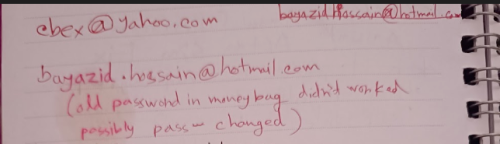 bayazid.hossain@hotmail.com
ebex@yahoo.com
bayazid.hossain@hotmail.com
(old password in moneybag didn't worked
possibly pass- changed)